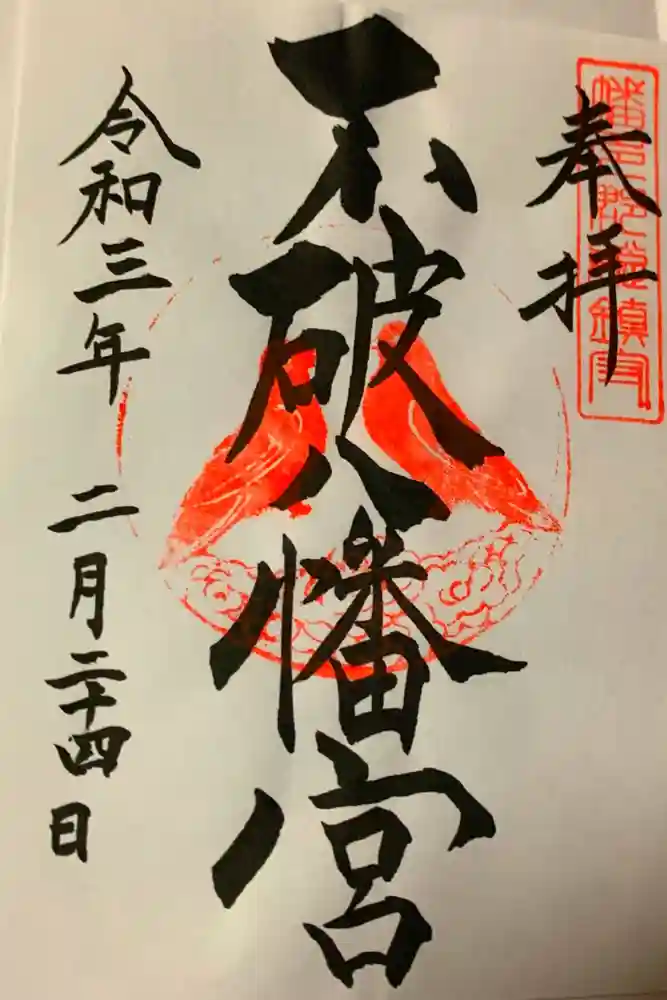 奉拝
不破八幡宮
令和三年 二月二十四日